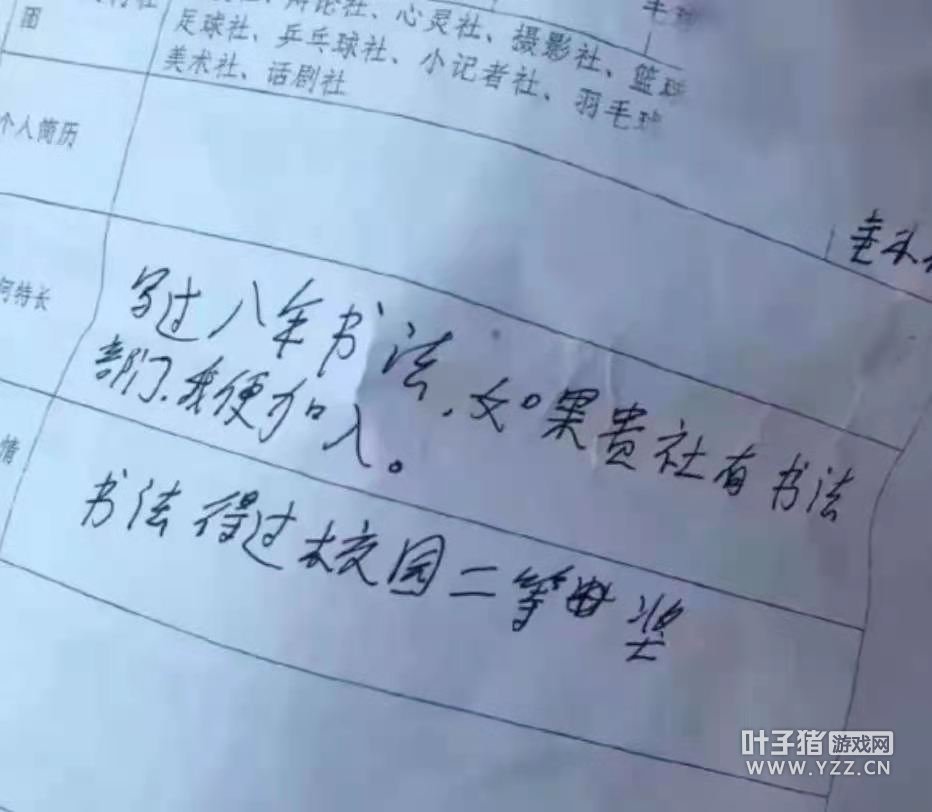 团
辩论社、心灵社、摄影社、篮球
足球社、乒乓球社、小记者社、羽毛球
美术社、话剧社
毛球
个人简历
何特长
写过八年书法,如果贵社有书法
部门,我便加入。
情
书法得过校园二等奖
叶子猪游戏网
www.YZZ.CN